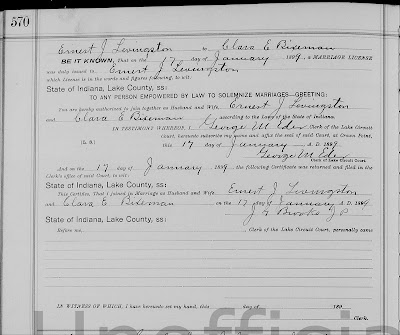 570
Ernest J Levingston to Clara E Biseman
BE IT KNOWN, That on the 17 day of January 1899, a MARRIAGE LICENSE
was duly issued to Ernest J Levingston
which license is in the words and figures following, to wit:
State of Indiana, Lake County, ss:
TO ANY PERSON EMPOWERED BY LAW TO SOLEMNIZE MARRIAGES—GREETING:
You are hereby authorized to join together as Husband and Wife Ernest J Levingston
and Clara E Biseman according to the Laws of the State of Indiana.
IN TESTIMONY WHEREOF, I George M Eder Clerk of the Lake Circuit
Court, hereunto subscribe my name and affix the seal of said Court, at Crown Point,
(L. S.) this 17 day of January A. D. 1899
George M Eder
Clerk of Lake Circuit Court.
And on the 17 day of January 1899, the following Certificate was returned and filed in the
Clerk's office of said County, to wit:
State of Indiana, Lake County, ss:
This Certifies, That I joined in Marriage as Husband and Wife Ernest J Levingston
and Clara E Biseman on the 17 day of January A. D. 1899
Brooks J P
State of Indiana, Lake County, ss:
Before me, Clerk of the Lake Circuit Court, personally came
IN WITNESS OF WHICH, I have hereunto set my hand, this day of 189
Unofficia